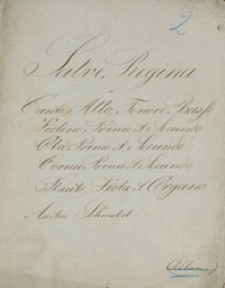 2
Salve Regina
a
Canto Alto Tenore Basso
Violino Primo et Secundo
Oboe Primo et Secundo
Corni Primo et Secundo
Flauto Viola et Organo
Schnabel